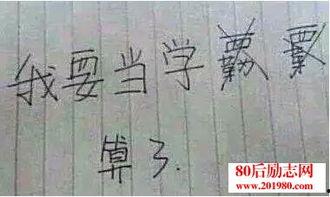 我要当学
算了.
80后励志网
www.201980.com